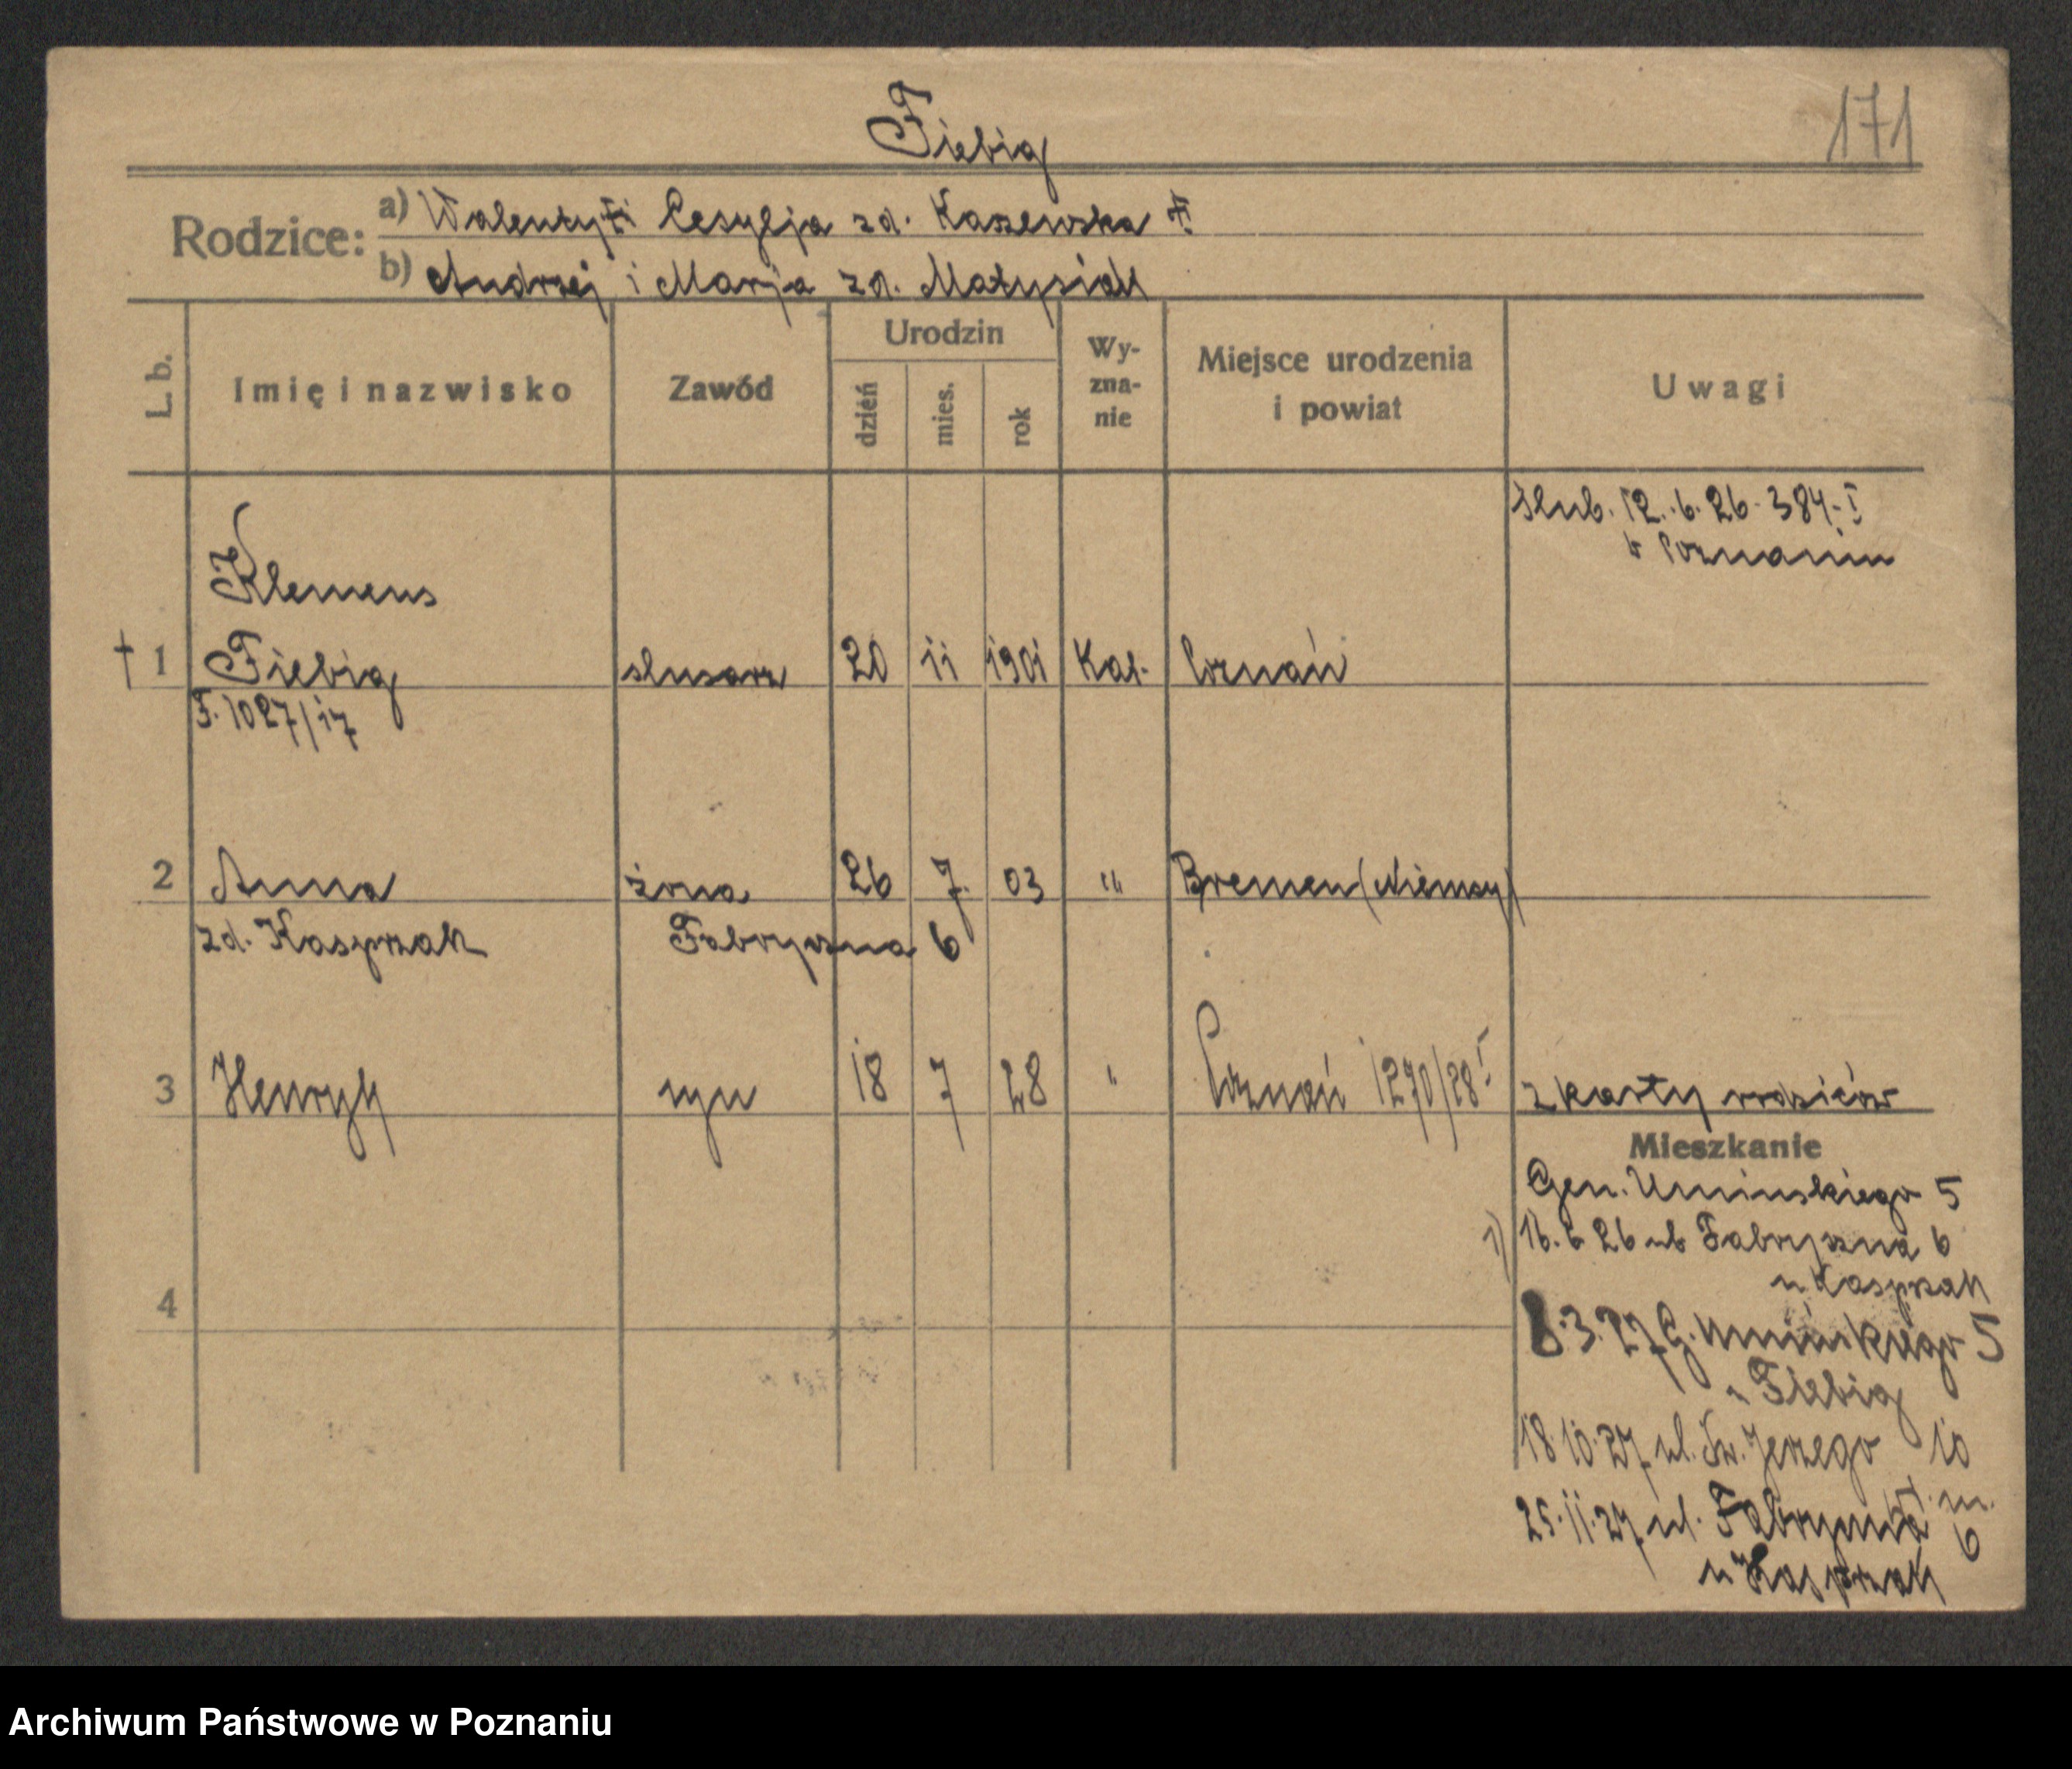 Fiebig
171
Rodzice:
a) Walenty i Cesylja zd. Kaszewska
b) Andrzej i Marja zd. Matysiak
L. b.
Imię i nazwisko
Zawód
Urodzin
dzień
mies.
rok
Wy-
zna-
nie
Miejsce urodzenia
i powiat
Uwagi
ślub. 12.6.26. 384.I
w Poznaniu
Klemens
† 1 Fiebig ślusarz 20 11 1901 Kat. Poznań
F. 1027/17
2 Anna żona 26 7. 03 " Bremen (Niemcy)
zd. Kasprzak Fabryczna 6
3 Henryk syn 18 7 28 " Poznań 1270/28 I z karty rodziców
Mieszkanie
Gen. Umińskiego 5
1) 16.6 26 ul Fabryczna 6
u Kasprzak
4
8.3.27 G. Umińskiego 5
u Fiebig
18.10.27 ul. Św. Jerzego 10
25.11.27 ul. Fabryczna 6
u Kasprzak
Archiwum Państwowe w Poznaniu